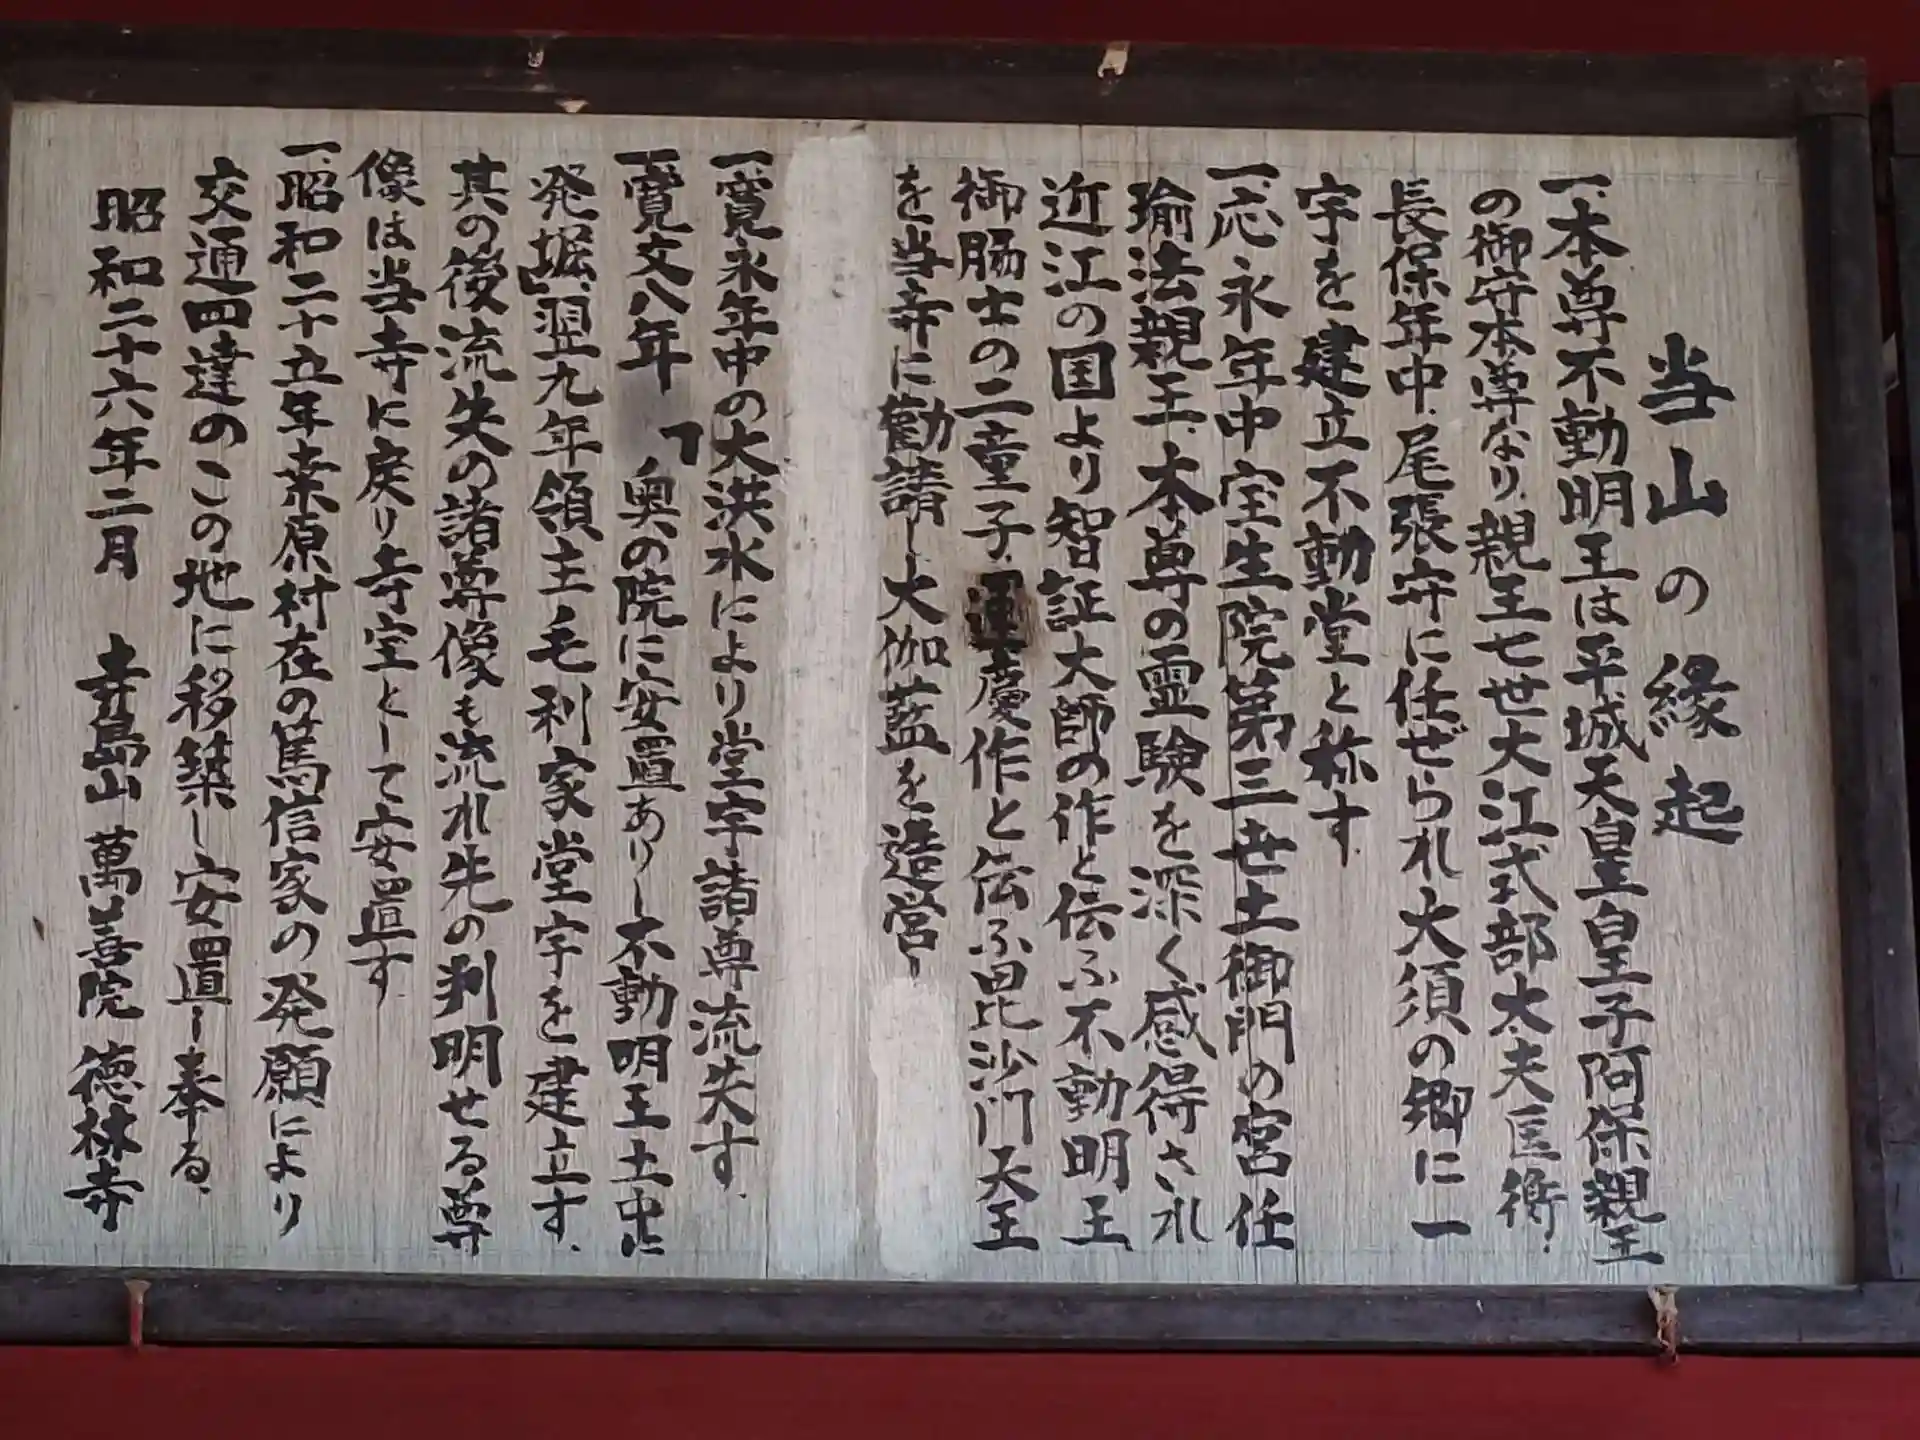 当山の縁起
一、本尊不動明王は平城天皇皇子阿保親王
の御守本尊なり、親王七世大江式部大夫匡衡、
長保年中、尾張守に任ぜられ大須の郷に一
宇を建立不動堂と称す。
一、応永年中宝生院第三世土御門の宮任
瑜法親王、本尊の霊験を深く感得され
近江の国より智証大師の作と伝ふ不動明王
御脇士の二童子、運慶作と伝ふ毘沙門天王
を当寺に勧請し大伽藍を造営し
一、寛永年中の大洪水により堂宇諸尊流失す。
一、寛文八年「奥の院に安置ありし不動明王土中に
発堀」、翌九年領主毛利家堂宇を建立す、
其の後流失の諸尊像も流れ先の判明せる尊
像は当寺に戻り寺宝として安置す
一、昭和二十五年桒原村在の篤信家の発願により
交通四達のこの地に移築し安置し奉る、
昭和二十六年二月　幸島山 萬善院 徳林寺